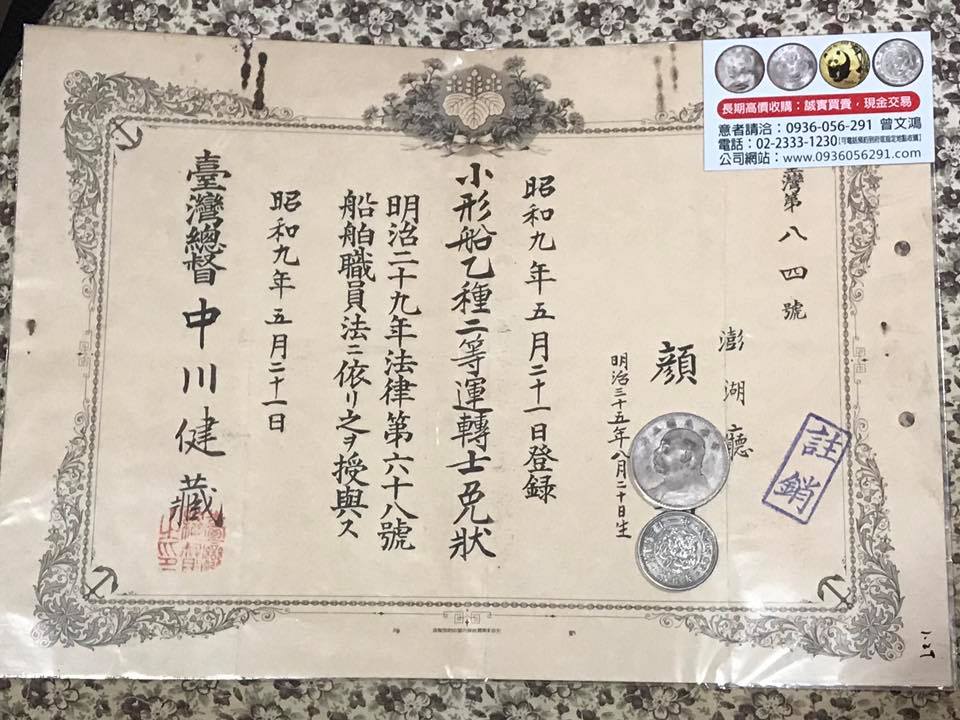 長期高價收購：誠實買賣，現金交易
意者請洽：0936-056-291 曾文鴻
電話：02-2333-1230
公司網站：www.0936056291.com
灣第八四號
澎湖廳
顏
明治三十五年八月二十日生
昭和九年五月二十一日登錄
小形船乙種二等運轉士免狀
明治二十九年法律第六十八號
船舶職員法ニ依リ之ヲ授與ス
昭和九年五月二十一日
臺灣總督中川健藏
註銷